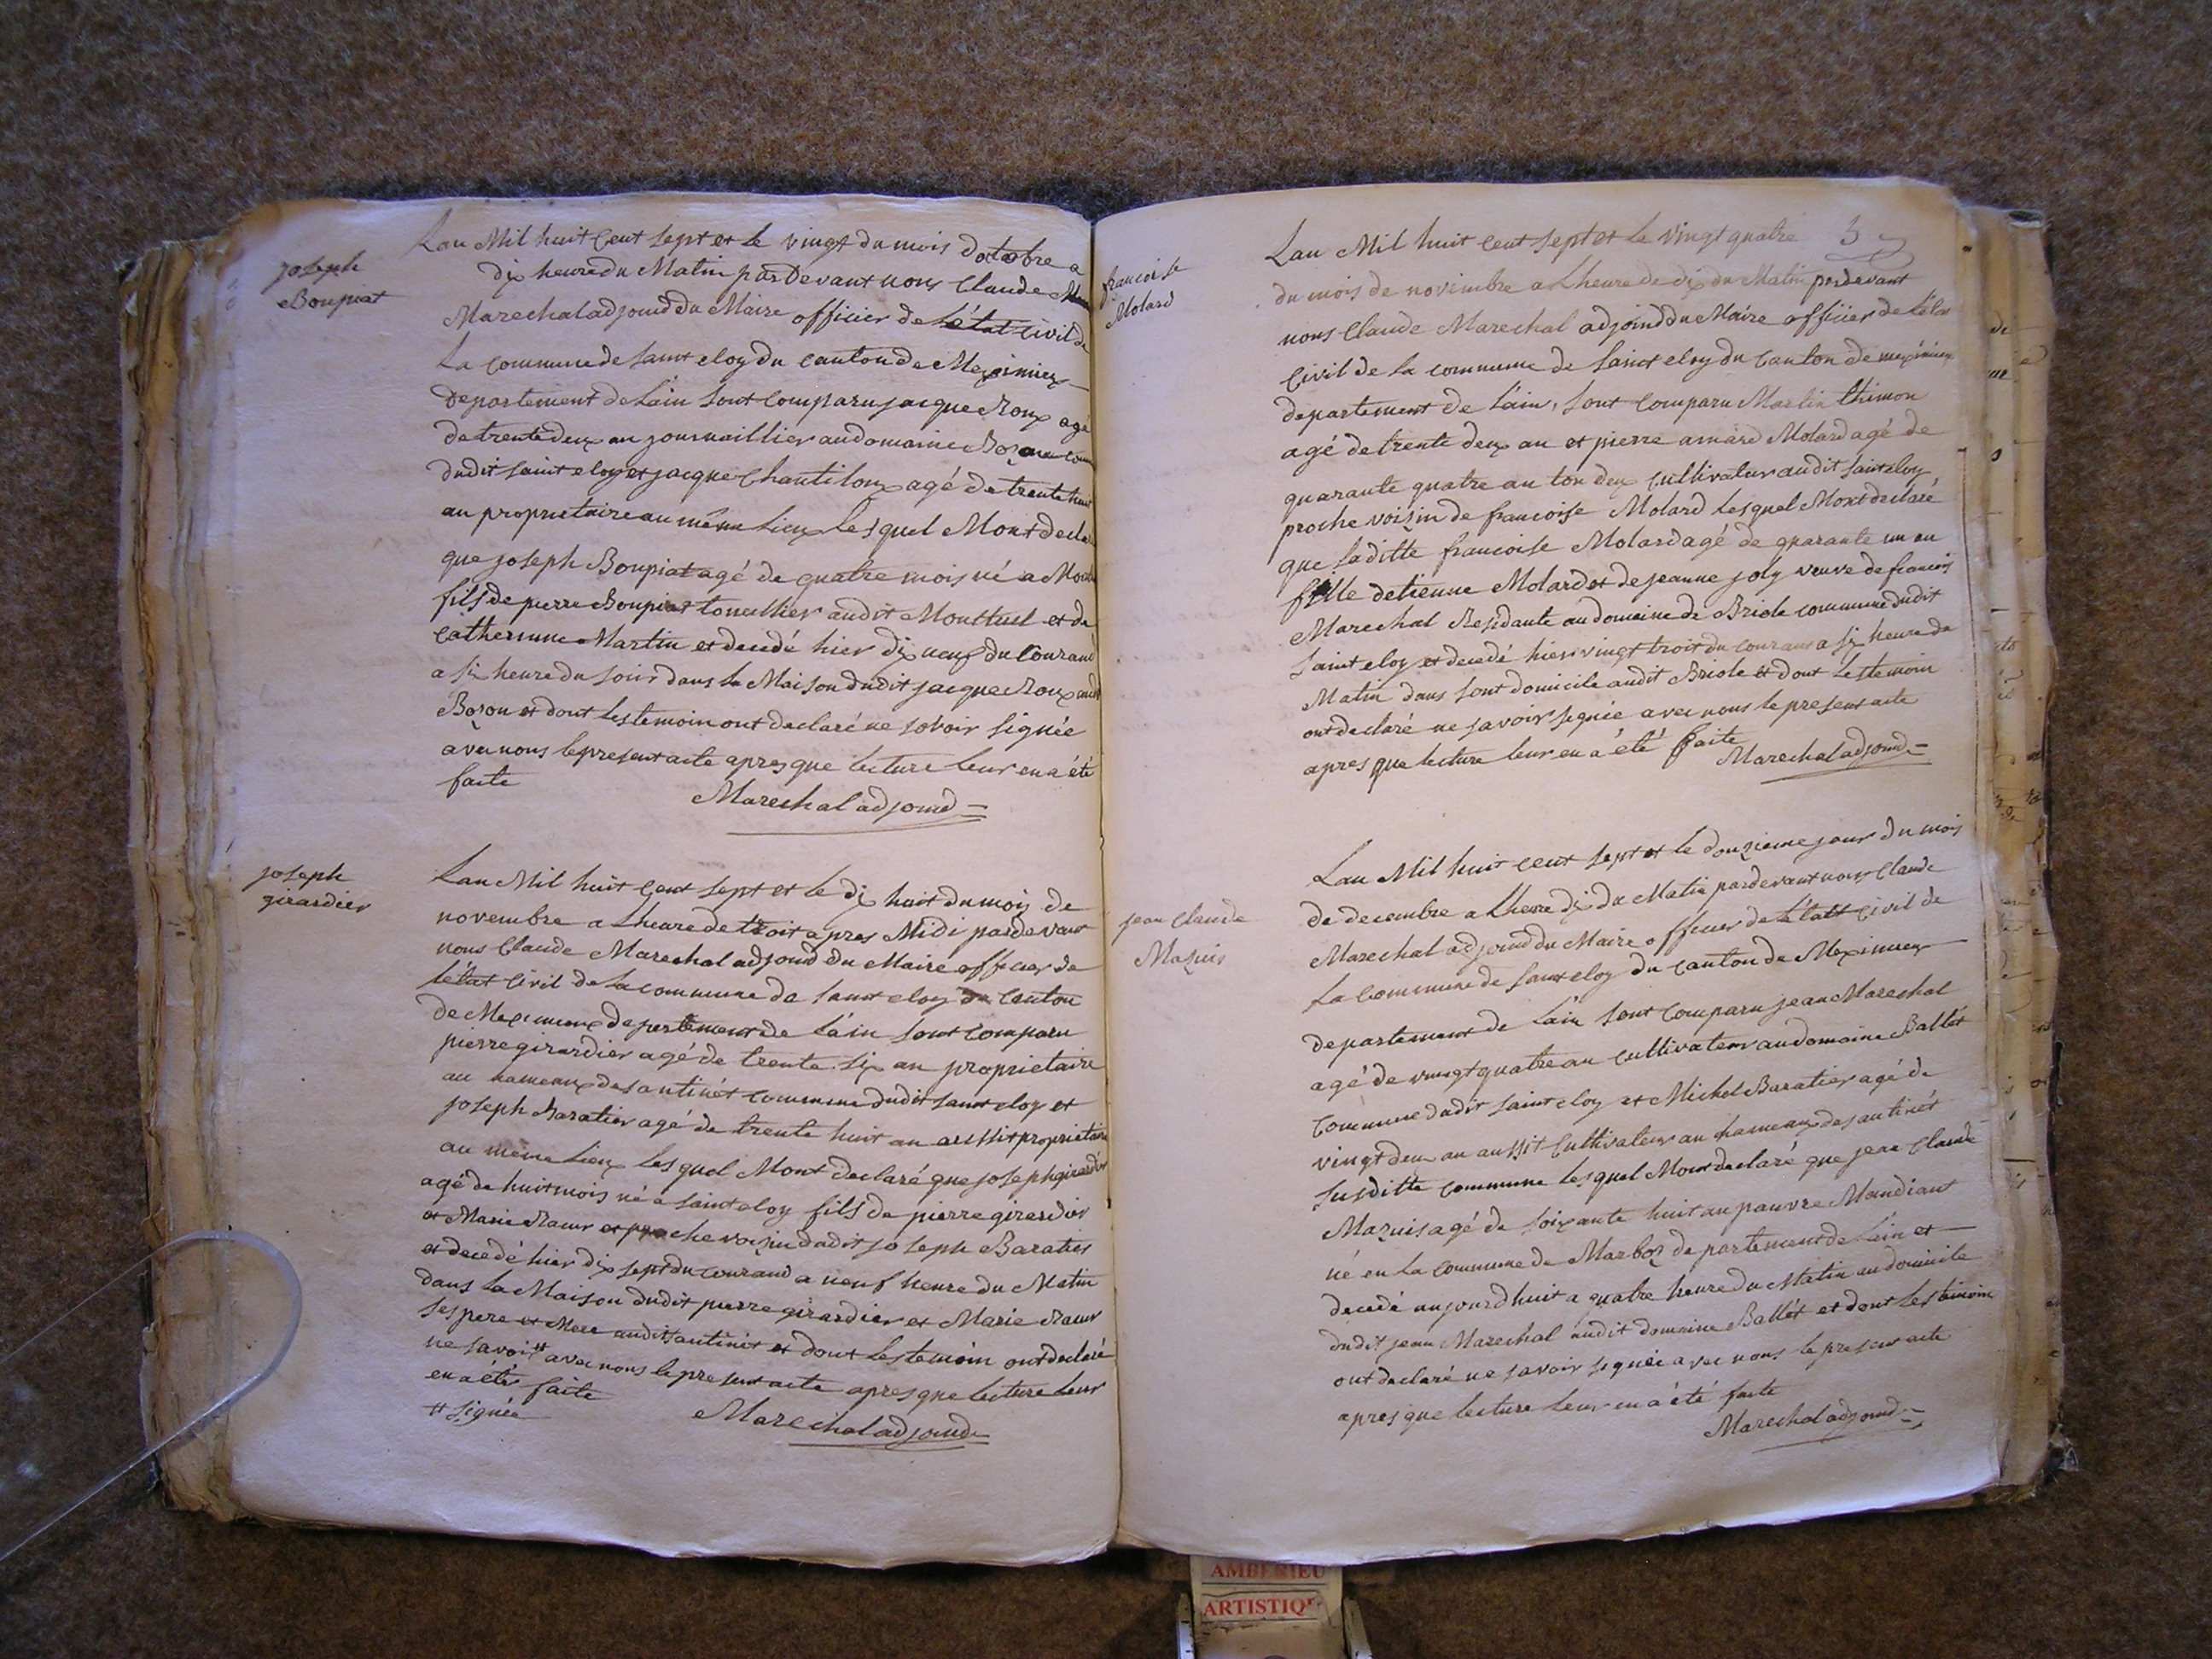 joseph
Boupiat
Lan Mil huit Cent sept et le vingt du mois doctobre a
dix heure du Matin par Devant nous Claude
Marechal adjoind du Maire officier de L'état Civil de
La commune de saint eloy du canton de Meximieux
departement de Lain sont comparu jacque Roux agé
de trente deux an journaillier au domaine Bozon
dudit saint eloy et jacque Chantiloux agé de trente huit
an proprietaire au même Lieux Lesquel Mont declaré
que joseph Boupiat agé de quatre mois né a
fils de pierre Boupiat tonellier audit Montluel et de
Catherinne Martin et decedé hier dix neuf du Courand
a six heure du soir dans la Maison dudit jacque Roux audit
Bozon et dont Les temoin ont declaré ne savoir signée
avec nous le present acte apres que lecture leur en a été
faite
Marechal adjoind
joseph
girardier
Lan Mil huit Cent sept et le dix huit du mois de
novembre a Lheure de troit apres Midi par devant
nous Claude Marechal adjoind du Maire officier de
létat Civil de La commune de saint eloy du Canton
de Meximieux departement de Láin sont comparu
pierre girardier agé de trente six an proprietaire
au hameaux des antinét commune dudit saint eloy et
joseph Baratier agé de trente huit an aussit proprietaire
au même Lieux Les quel Mont declaré que joseph girardier
agé de huit mois né a saint eloy fils de pierre girardier
et Marie Raeur et proche voizin dudit joseph Baratier
et decedé hier dix sept du courand a neuf heure du Matin
dans La Maison dudit pierre girardier et Marie Raeur
ses pere et Mere audit santinét et dont Les temoin ont declaré
ne savoir # avec nous le present acte apres que lecture leur
en a été faite
# signée
Marechal adjoind
3
francoise
Molard
Lan Mil huit Cent sept et Le vingt quatre
du mois de novembre a Lheure de dix du Matin par devant
nous Claude Marechal adjoind du Maire officier de L'état
Civil de La commune de saint eloy du Canton de meximieux
departement de Láin, sont comparu Martin thimon
agé de trente deux an et pierre amard Molard agé de
quarante quatre an tou deux cultivateur audit saint eloy
proche voizin de francoise Molard Lesquel Mont declaré
que Laditte francoise Molard agé de quarante un an
fille detienne Molard et de jeanne joly veuve de francois
Marechal Residante au domaine de Briole commune dudit
saint eloy et decedé hier vingt troit du courant a six heure du
Matin dans sont domicile audit Briole et dont Les temoin
ont declaré ne savoir signée avec nous le present acte
apres que lecture leur en a été faite
Marechal adjoind
jean Claude
Mazuis
Lan Mil huit cent sept et le douzieme jour du mois
de decembre a Lheure dix du Matin par devant nous Claude
Marechal adjoind du Maire officier de L'état Civil de
La Commune de saint eloy du canton de Meximieux
departement de Láin sont Comparu jean Marechal
agé de vingt quatre an cultivateur au domaine Ballét
Commune dudit saint eloy et Michel Baratier agé de
vingt deux an aussit Cultivateur au hameaux des antinét
susditte commune Lesquel Mont declaré que jean Claude
Mazuis agé de soixante huit an pauvre Mandiant
né en La commune de Marboz departement de Láin et
decedé aujourdhuit a quatre heure du Matin au domicile
dudit jean Marechal audit domaine Ballét et dont Les temoin
ont declaré ne savoir signée avec nous le present acte
apres que lecture leur en a été faite
Marechal adjoind
AMBERIEU
ARTISTIQ